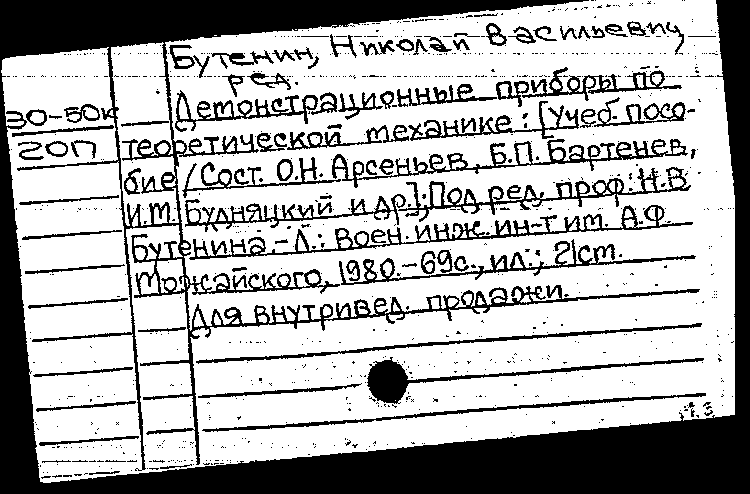 Бутенин, Николай Васильевич,
ред.
30-50к Демонстрационные приборы по
20П теоретической механике: [Учеб. посо-
бие / Сост. О.Н. Арсеньев, Б.П. Бартенев,
И.Т. Будняцкий и др.]; Под ред. проф. Н.В.
Бутенина.-Л.: Воен. инж. ин-т им. А.Ф.
Можайского, 1980.-69с., ил.; 21см.
Для внутривед. продажи.